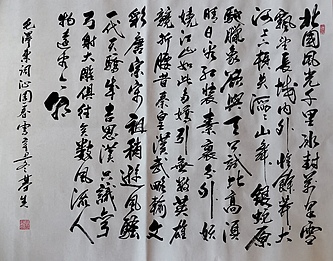 北国风光千里冰封万里雪
飘望长城内外惟馀莽大
河上下顿失滔滔山舞银蛇原
驰蜡象欲与天公试比高须
晴日看红装素裹分外妖
娆江山如此多娇引无数英雄
竞折腰昔秦皇汉武略输文
采唐宗宋祖稍逊风骚
一代天骄成吉思汗只识弯
弓射大雕俱往矣数风流人
物还看今朝
毛泽东词沁园春雪